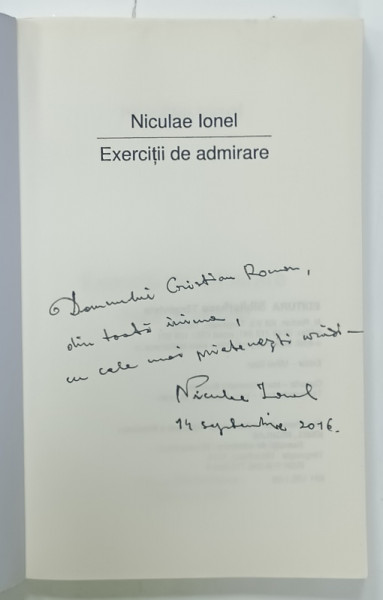 Niculae Ionel
Exerciții de admirare
Domnului Cristian Roman,
din toată inima,
cu cele mai prietenești
Niculae Ionel
14 septembrie 2016.